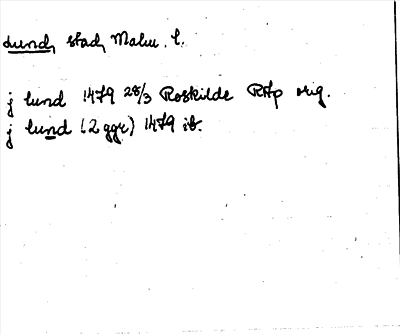 Lund, stad, Malm. l.
j lund 1479 28/3 Roskilde RAp orig.
j lund (2 ggr) 1479 ib.